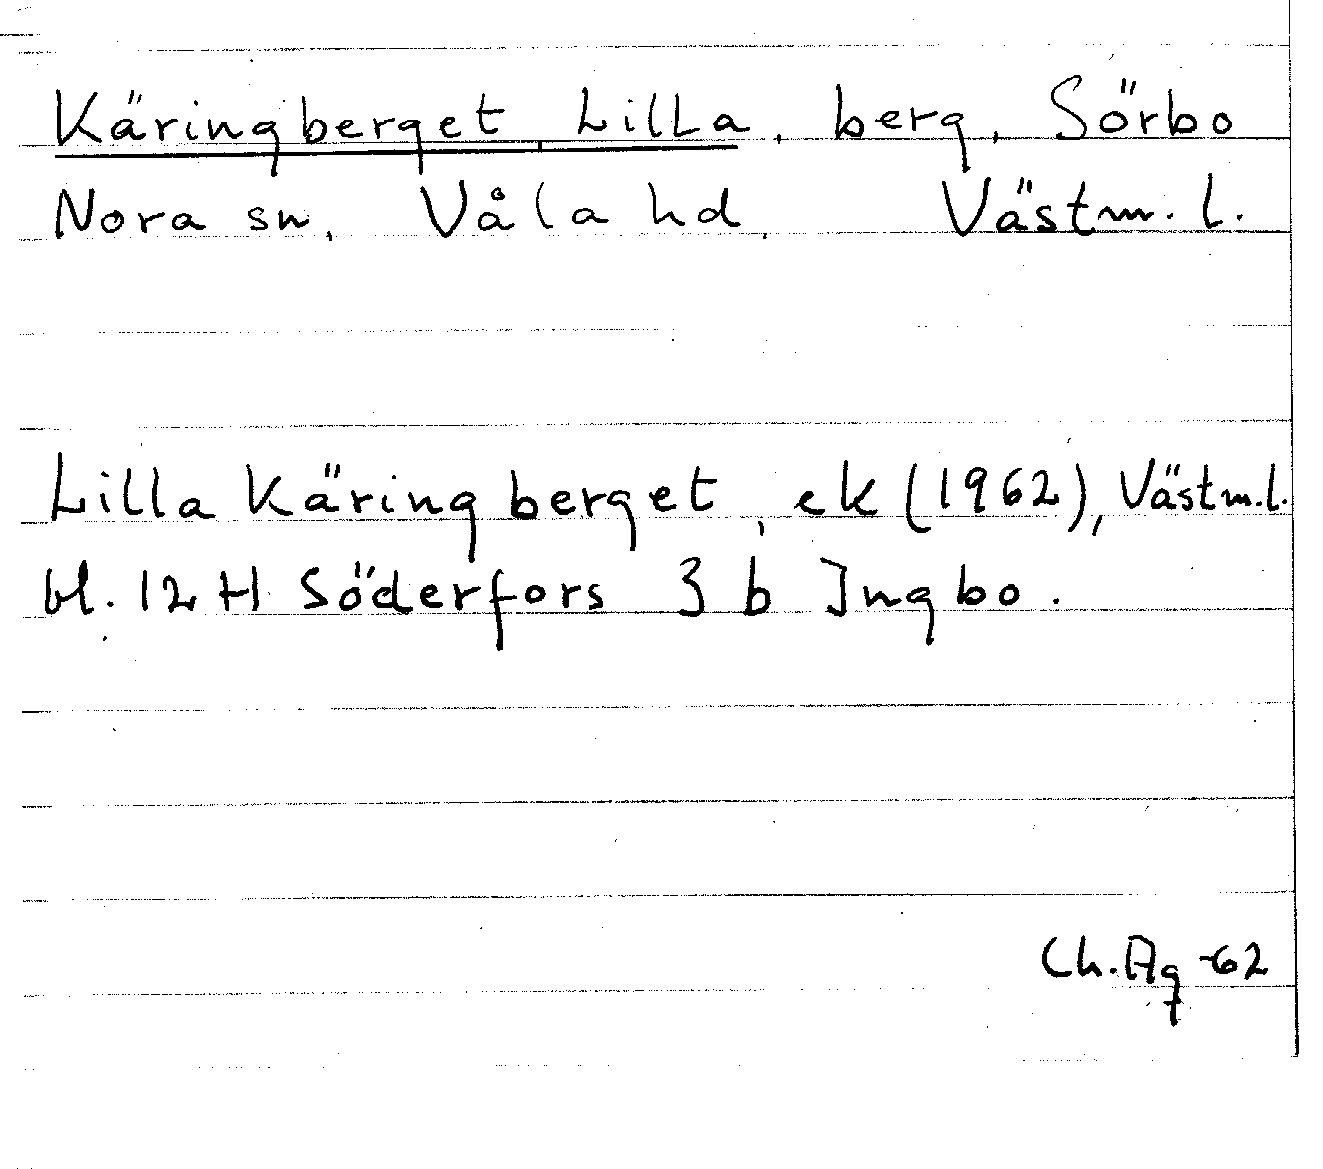 Käringberget Lilla, berg, Sörbo
Nora sn, Våla hd, Västm. l.
Lilla Käringberget, ek (1962), Västm.l.
bl. 12 H Söderfors 3 b Ingbo.
Ch. Ag -62